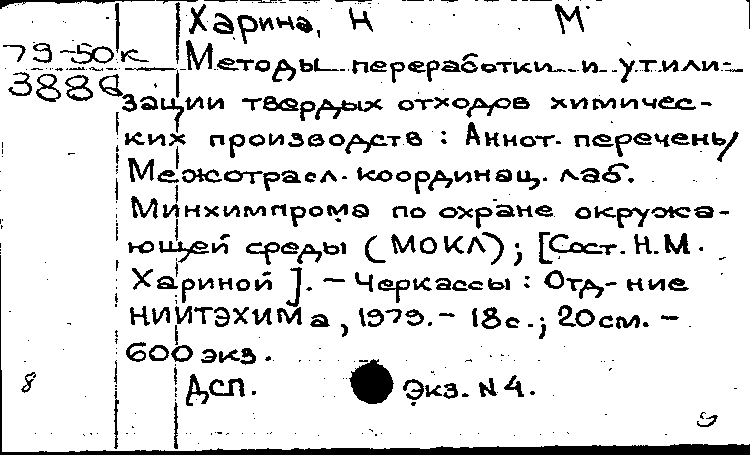 Харина, Н М
79-50к Методы переработки и утили-
3886 зации твердых отходов химичес-
ких производств : Аннот. перечень/
Межотрасл. координац. лаб.
Минхимпрома по охране окружа-
ющей среды (МОКЛ); [Сост. Н.М.
Хариной]. – Черкассы : Отд-ние
НИИТЭХИМа, 1979. – 18с.; 20см. –
600 экз.
8 ДСП. Экз. N 4.